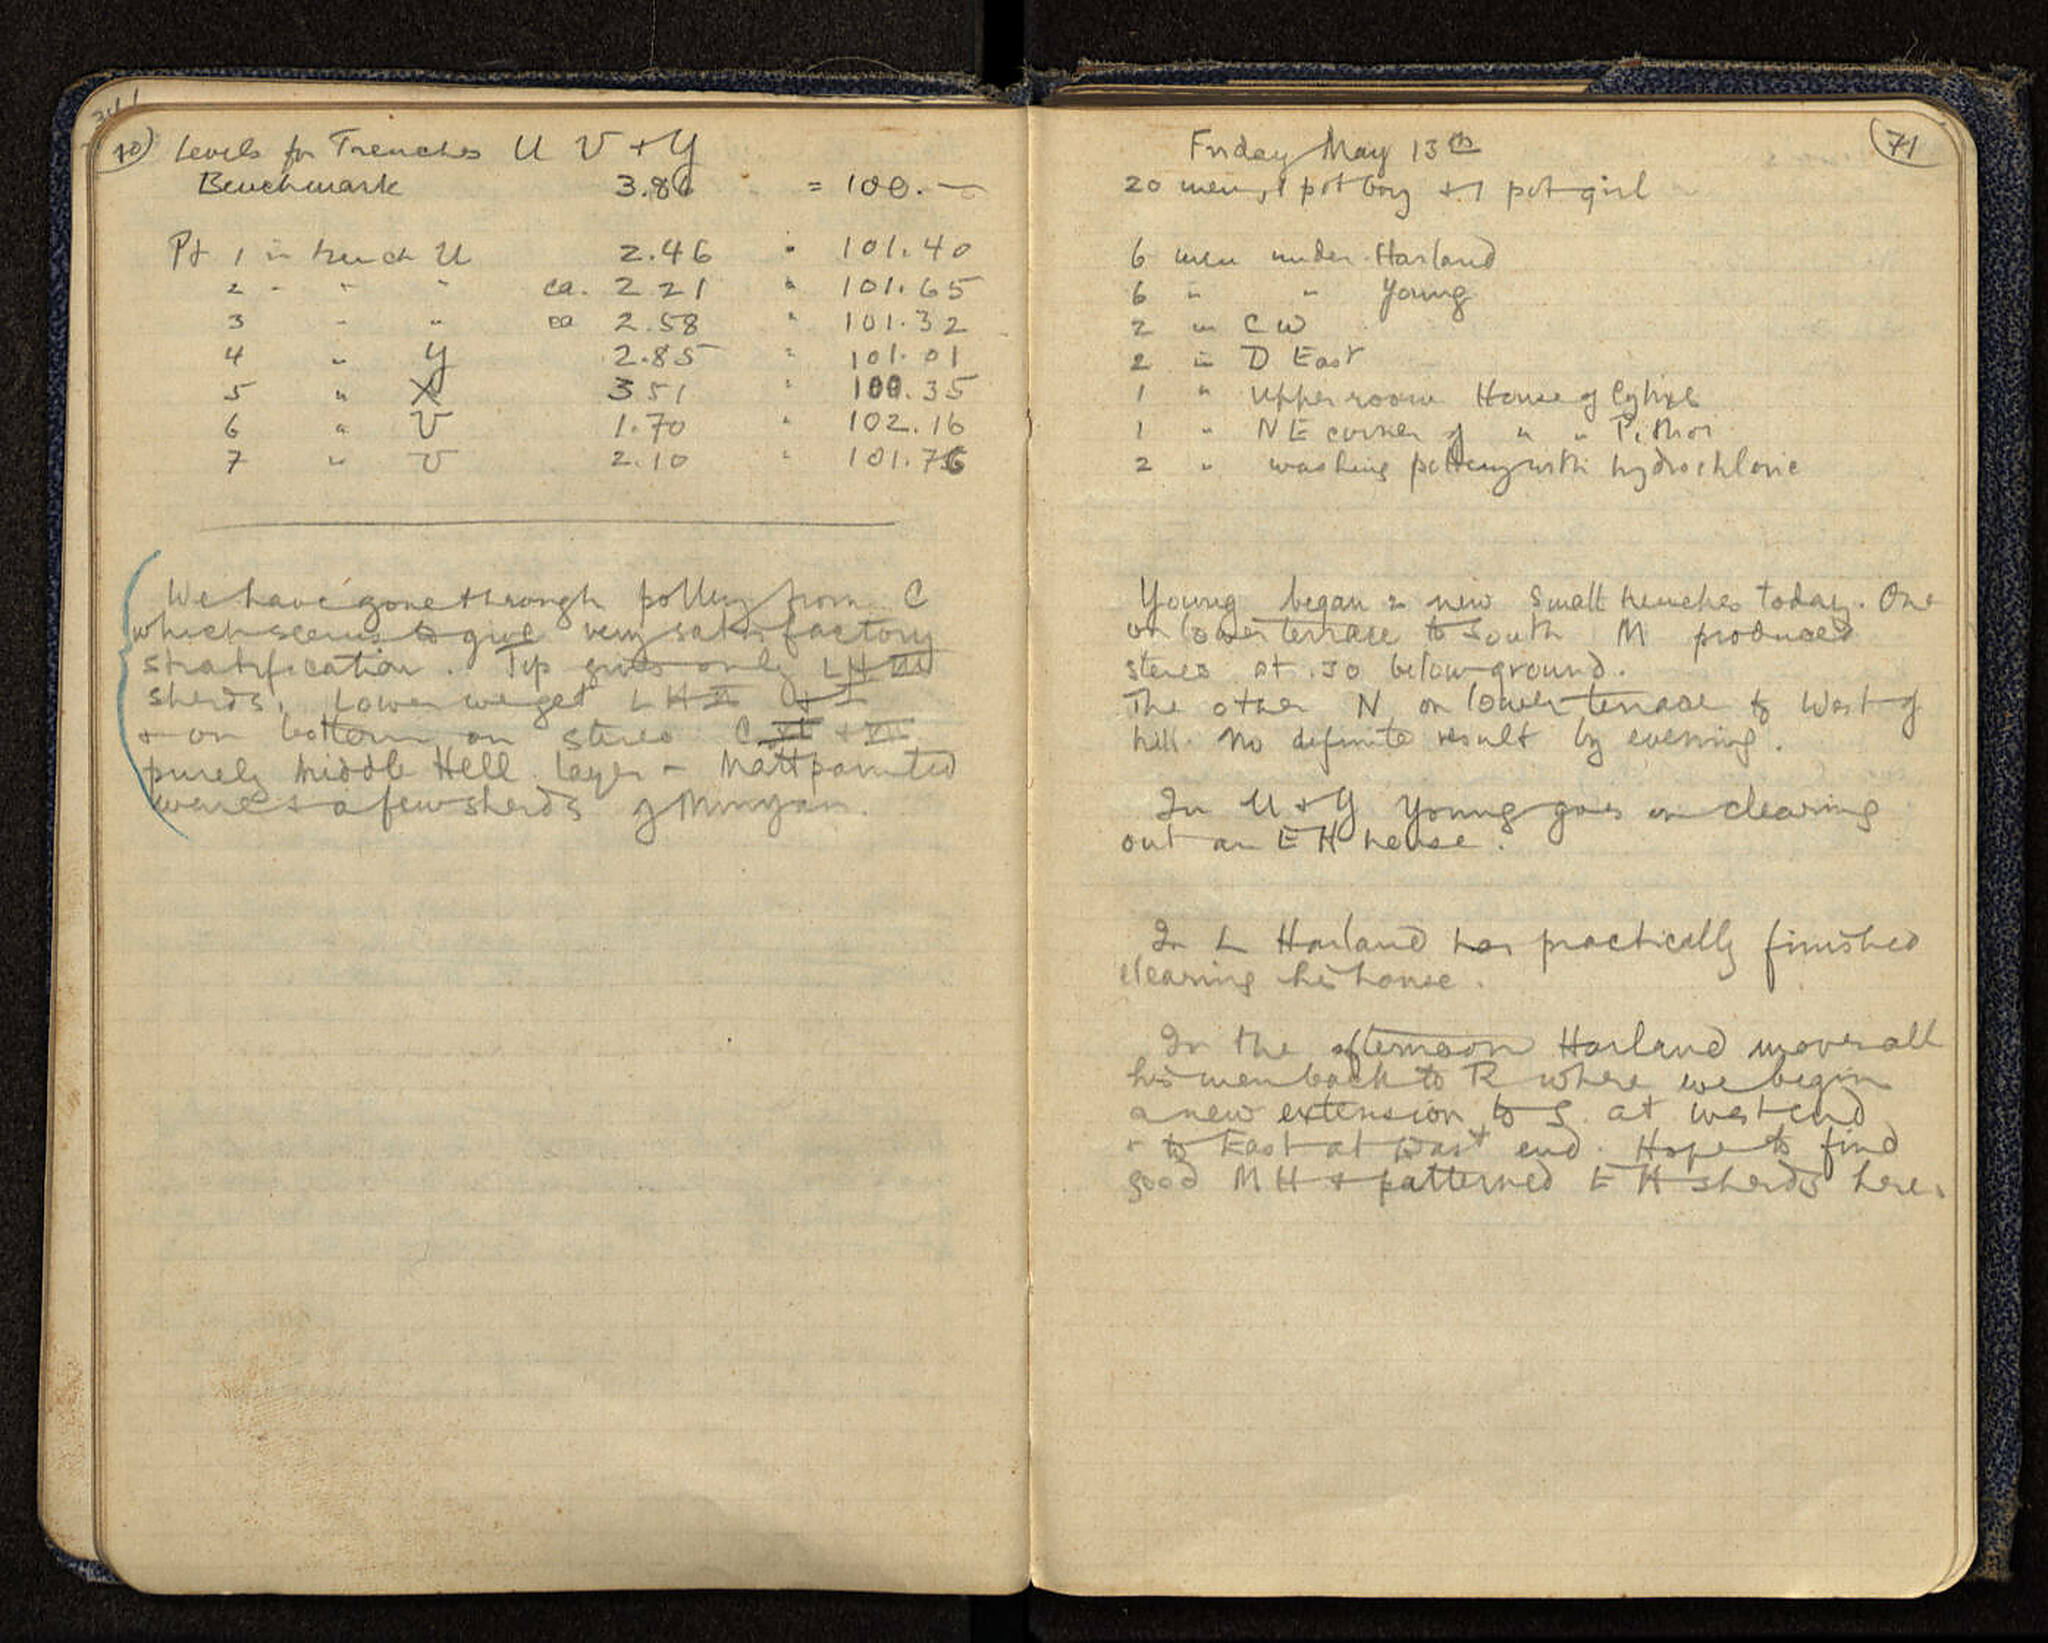 70) Levels for Trenches U V + Y
Benchmark 3.86 = 100.—
Pt 1 in trench U 2.46 " 101.40
2 " " " ca. 2.21 " 101.65
3 " " ca 2.58 " 101.32
4 " Y 2.85 " 101.01
5 " X 3.51 " 100.35
6 " V 1.70 " 102.16
7 " V 2.10 " 101.76
We have gone through pottery from C
which seems to give very satisfactory
stratification. Top gives only LH III
sherds. Lower we get LH II & I
+ on bottom on stereo C VI + VII
purely Middle Hell. layer - Mattpainted
ware + a few sherds of Minyan.
71
Friday May 13th
20 men, 1 pot boy + 1 pot girl
6 men under Harland
6 " " Young
2 in C W
2 in D East
1 " Upper room House of
1 " NE corner of " " Pithoi
2 " washing pottery with hydrochloric
Young began 2 new small trenches today. One
on lower terrace to South M produced
stereo at .30 below ground.
The other N on lower terrace to West of
hill. No definite result by evening.
In U + Y Young goes on clearing
out an EH house.
In L Harland has practically finished
clearing his house.
In the afternoon Harland moves all
his men back to R where we begin
a new extension to S. at west end
+ to East at East end. Hope to find
good MH + patterned EH sherds here.